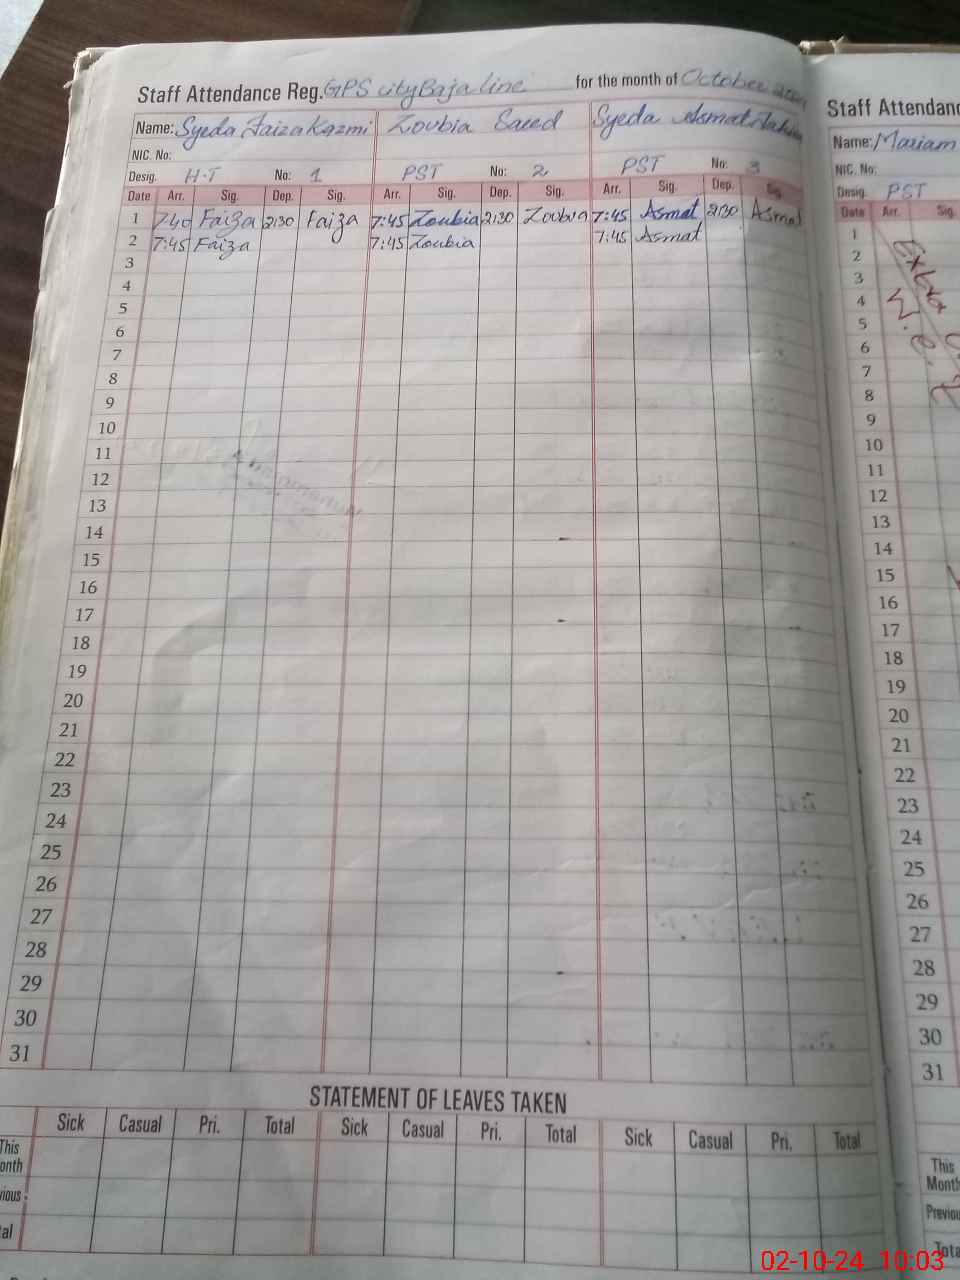 Staff Attendance Reg. GPS city Baja line for the month of October 2024
Name: Syeda Faiza Kazmi Zoubia Saeed Syeda Asmat
NIC. No:
Desig. H.T No: 1 PST No: 2 PST No: 3
Date Arr. Sig. Dep. Sig. Arr. Sig. Dep. Sig. Arr. Sig. Dep. Sig.
1 7:40 Faiza 2:30 Faiza 7:45 Zoubia 2:30 Zoubia 7:45 Asmat 2:30 Asmat
2 7:45 Faiza 7:45 Zoubia 7:45 Asmat
3
4
5
6
7
8
9
10
11
12
13
14
15
16
17
18
19
20
21
22
23
24
25
26
27
28
29
30
31
STATEMENT OF LEAVES TAKEN
Sick Casual Pri. Total Sick Casual Pri. Total Sick Casual Pri. Total
This
onth
vious
tal
Staff Attendanc
Name: Mariam
NIC. No:
Desig. PST
Date Arr. Sig.
1
2
3
4
5
6
7
8
9
10
11
12
13
14
15
16
17
18
19
20
21
22
23
24
25
26
27
28
29
30
31
Extra
W.e.f
This
Month
Previou
Tota
02-10-24 10:03